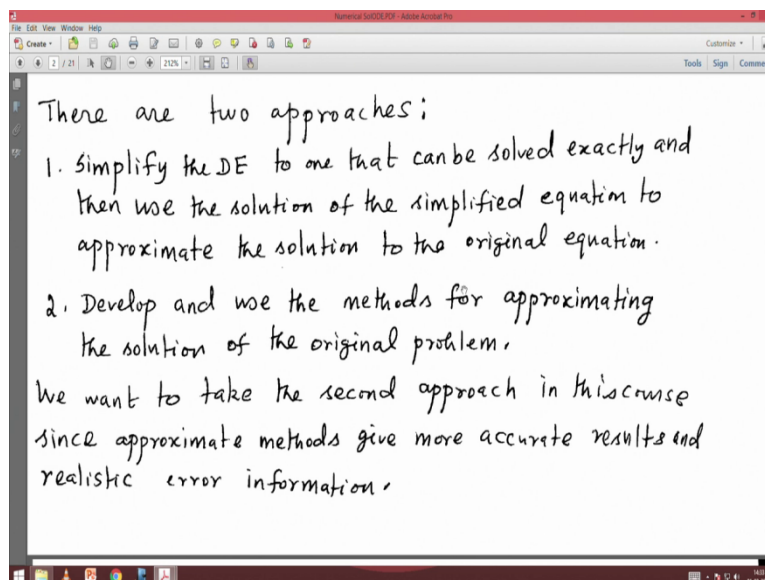 Numerical SolODE.PDF - Adobe Acrobat Pro
File Edit View Window Help
Create
Customize
2 / 21
212%
Tools Sign Comme
There are two approaches:
1. Simplify the DE to one that can be solved exactly and
then use the solution of the simplified equation to
approximate the solution to the original equation.
2. Develop and use the methods for approximating
the solution of the original problem.
We want to take the second approach in this course
since approximate methods give more accurate results and
realistic error information.